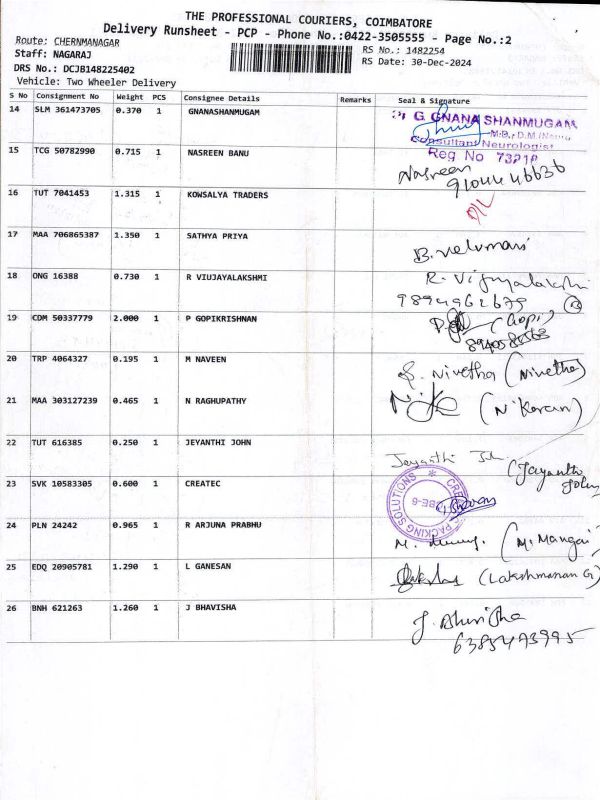 THE PROFESSIONAL COURIERS, COIMBATORE
Delivery Runsheet - PCP - Phone No.:0422-3505555 - Page No.:2
Route: CHERNMANAGAR
RS No.: 1482254
Staff: NAGARAJ
RS Date: 30-Dec-2024
DRS No.: DCJB148225402
Vehicle: Two Wheeler Delivery
S No Consignment No Weight PCS Consignee Details Remarks Seal & Signature
14 SLM 361473705 0.370 1 GNANASHANMUGAM
G GNANA SHANMUGAM
M.D., D.M
Consultant Neurologist
Reg No
15 TCG 50782990 0.715 1 NASREEN BANU
Nasreen
16 TUT 7041453 1.315 1 KOWSALYA TRADERS
17 MAA 706865387 1.350 1 SATHYA PRIYA
B. Velumani
18 ONG 16388 0.730 1 R VIUJAYALAKSHMI
R. Vijayalakshi
19 CDM 50337779 2.000 1 P GOPIKRISHNAN
(Gopi)
20 TRP 4064327 0.195 1 M NAVEEN
S. Nivetha (Nivetha)
21 MAA 303127239 0.465 1 N RAGHUPATHY
(Nikaran)
22 TUT 616385 0.250 1 JEYANTHI JOHN
Jeyanthi
(Jayanthi
John
23 SVK 10583305 0.600 1 CREATEC
PACKING SOLUTIONS
24 PLN 24242 0.965 1 R ARJUNA PRABHU
(M. Mangai
25 EDQ 20905781 1.290 1 L GANESAN
(Lakshmanan G)
26 BNH 621263 1.260 1 J BHAVISHA
J. Bhavisha
6385493995